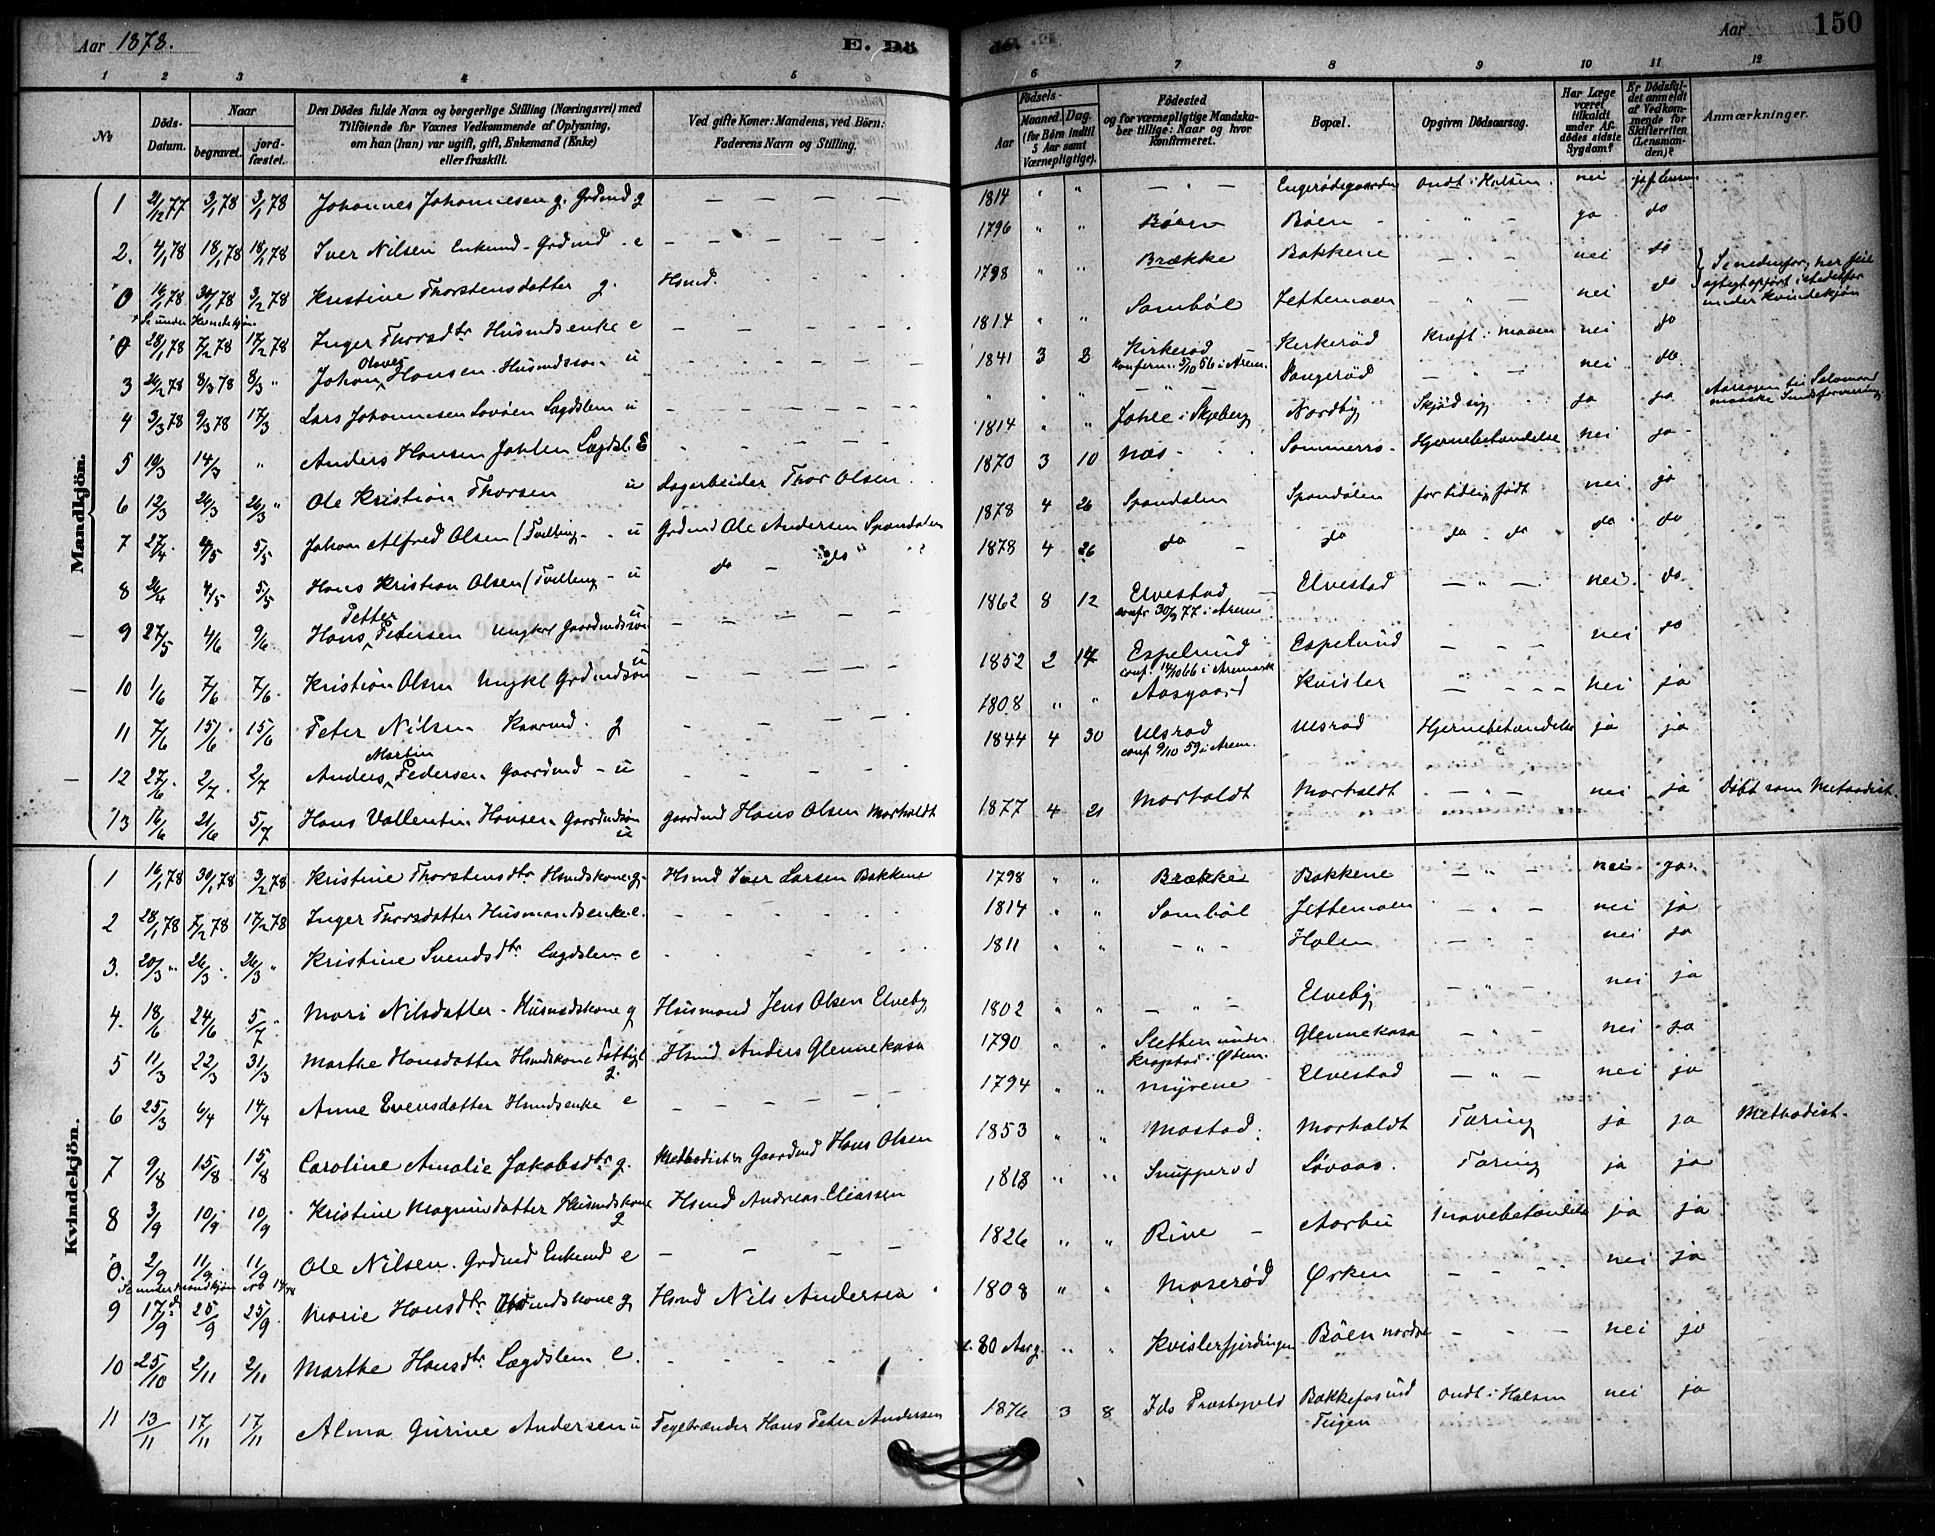 Aar 1878. E. Dö
de. Aar 150
1 2 3 4 5 6
6 7 8 9 10 11 12
No
Döds-Datum.
Naar
begravet. jordfæstet.
Den Dödes fulde Navn og borgerlige Stilling (Næringsvei) med
Tilföiende for Voxnes Vedkommende af Oplysning,
om han (hun) var ugift, gift, Enkemand (Enke)
eller fraskilt.
Ved gifte Koner: Mandens, ved Börn:
Faderens Navn og Stilling.
Födsels-
Aar Maaned. Dag.
(for Börn indtil
5 Aar samt
Værnepligtige).
Födested
og for værnepligtige Mandskaber
tillige: Naar og hvor
konfirmeret.
Bopæl.
Opgiven Dödsaarsag.
Har Læge været tilkaldt under Afdödes sidste Sygdom?
Er Dödsfaldet anmeldt af Vedkommende for Skifteretten (Lensmanden)?
Anmærkninger.
Mandkjön.
1 21/12 77 3/1 78 3/1 78 Johannes Johannesen g. Grdmd g — — — — 1814 " " — " — Engerødegaarden Ondt i Halsen nei
2. 4/1 78 18/1 78 18/1 78 Iver Nilsen Enkemd - Grdmd - e — — — 1796 " " Bøen Bøen - " - ja do
0 16/1 78 30/1 78 3/2 78 Kristine Thorstensdatter g. Hsmd. 1798 " " Brække Bakkene - " - nei do
Se under Kvindekjøn
0 28/1 78 7/2 78 17/2 78 Inger Thorsdtr Husmdsenke e — — — 1814 " " Sambøl Jettemoen - " - nei do
3 26/2 78 8/3 78 8/3 " Johan Olaves Hansen Husmdssøn u — — — 1841 3 3 Kirkerød Kirkerød Kræft i maven nei do
konferm. 5/10 56 i Arem.
4 3/3 78 9/3 78 17/3 Lars Johannesen Lovøen Lægdslem u — — — " " " — " — Vangerød — " — nei do
5 10/3 14/3 " Anders Hansen Jahlen Lægdsl. E - - - 1814 " " Jahle i Skjeberg Nordby Skjød sig ja ja
6 12/3 26/3 26/3 " Ole Kristian Thorsen u Dagarbeider Thor Olsen 1870 3 10 Næs - Sommerro - Hjernebetændelse nei ja
7 27/4 4/5 5/5 Johan Alfred Olsen (Tvilling - u Grdmd Ole Andersen Spondalen 1878 4 26 Spondalen Spondalen for tidlig født nei ja
8 26/4 4/5 5/5 Hans Kristian Olsen (Tvilling - u do — do 1878 4 26 do do do - do do do
9 27/5 4/6 9/6 Hans Petter Petersen Ungkarl Gaardmdssøn u — — — 1862 8 12 Elvestad Elvestad — " — nei do
confr 30/9 77 i Arem
10 1/6 7/6 7/6. Kristian Olsen Ungkl Grdmdssøn u — — — 1852 2 14 Espelund Espelund — — — nei do
conf. 14/10 66 i Aremark
11 7/6 15/6 15/6 Peter Nilsen Kaarmd. g - - - 1808 " " Aasgaard Kvisler — — — nei ja
12 27/6 2/7 2/7 Anders Martin Pedersen Gaardmd - u - - - 1844 4 30 Ulsrød Ulsrød Hjernebetændelse ja ja
conf 9/10 59 i Arem.
13 16/6 21/6 5/7 Hans Vallentin Hansen Gaardmdssøn u Gaardmd Hans Olsen Morholdt 1877 4 21 Morholdt Morholdt — " — nei ja Døbt som Methodist.
Kvindekjön.
1 16/1 78 30/1 78 3/2 78 Kristine Thorstensdtr Hsmdskone g. Hsmd Iver Larsen Bakkene 1798 " " Brække Bakkene — " — nei ja
2 28/1 78 7/2 78 17/2 78 Inger Thorsdatter Husmandsenke e. - - - 1814 " " Sambøl Jettemoen — " — nei ja
3. 20/3 " 26/3 26/3 " Kristine Svendsdtr Lægdslem e - - - 1811 " " - " - Holen - - - nei ja
4. 18/6 24/6 5/7 " Mari Nilsdatter - Husmdskone g Husmand Jens Olsen Elveby 1802 " " — " — Elveby - " - nei ja
5 11/3 22/3 31/3 Marthe Hansdatter Hsmdskone Fattigl g. Hsmd Anders Glennekasa 1790 " " Sletten under Glennekasa — " — nei ja
Kragstad i Ødem.
6 25/3 6/4 14/4 Anne Evensdatter Hsmdsenke e — — — 1794 " " Myrene Elvestad — " — nei ja
7 9/8 15/8 15/8 Caroline Amalie Jakobsdtr g. Methodist Gaardmd Hans Olsen 1853 " " Mostad Morholdt Tæring ja ja Methodist.
8 3/9 10/9 10/9 Kristine Magnusdatter Husmdskone g Hsmd Andreas Eliassen 1818 " " Snupperød Løvaas. Tæring ja ja
0. 2/9 11/9 11/9 Ole Nilsen. Grdmd Enkemd e — — — 1826 " " Rive - Aarbu Mavebetændelse ja ja
Se under Mandkjøn
9 17/9 25/9 25/9. Marie Hansdtr Husmdskone g Hsmd Nils Andersen 1808 " " Moserød Ørken - - - nei ja
10 25/10 2/11 2/11 Marthe Hansdtr Lægdslem e. - - - 80 Aar g. " " Kvislerfjerdingen Bøen nordre - - - nei ja
11 13/11 17/11 17/11 Alma Gurine Andersen u Teglbrænder Hans Peter Andersen 1876 3 8 Ids Præstegjeld Bakkefosund Ondt i Halsen nei ja
Teigen